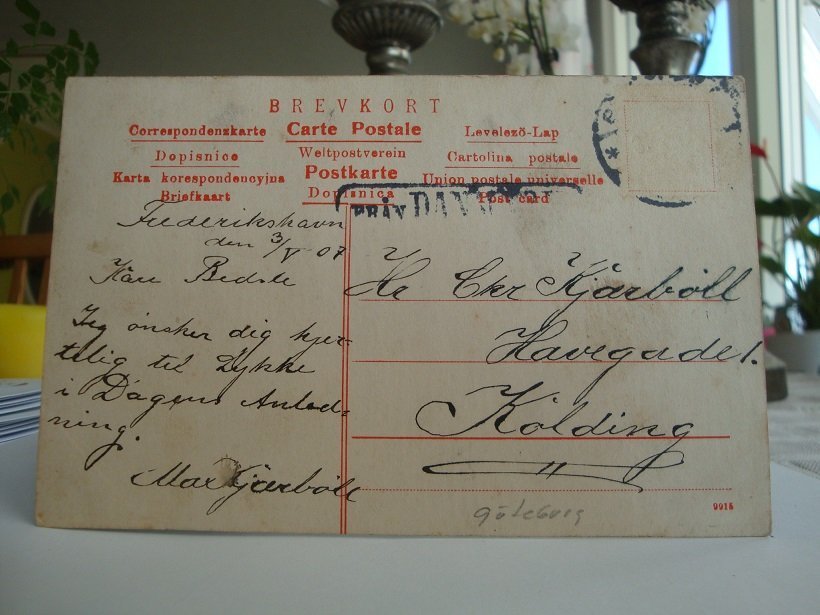 BREVKORT
Correspondenzkarte Carte Postale Levelező-Lap
Dopisnice Weltpostverein Cartolina postale
Karta korespondencyjna Postkarte Union postale universelle
Briefkaart Dopisnica Post card
FRÅN DANMARK
Frederikshavn
den 3/V 07
Kære Bedste
Jeg ønsker dig hjer-
telig til Lykke
i Dagens Anled-
ning.
Max Kjærbøll
Hr Chr Kjærbøll
Havegade 1.
Kolding
Göteborg
9915